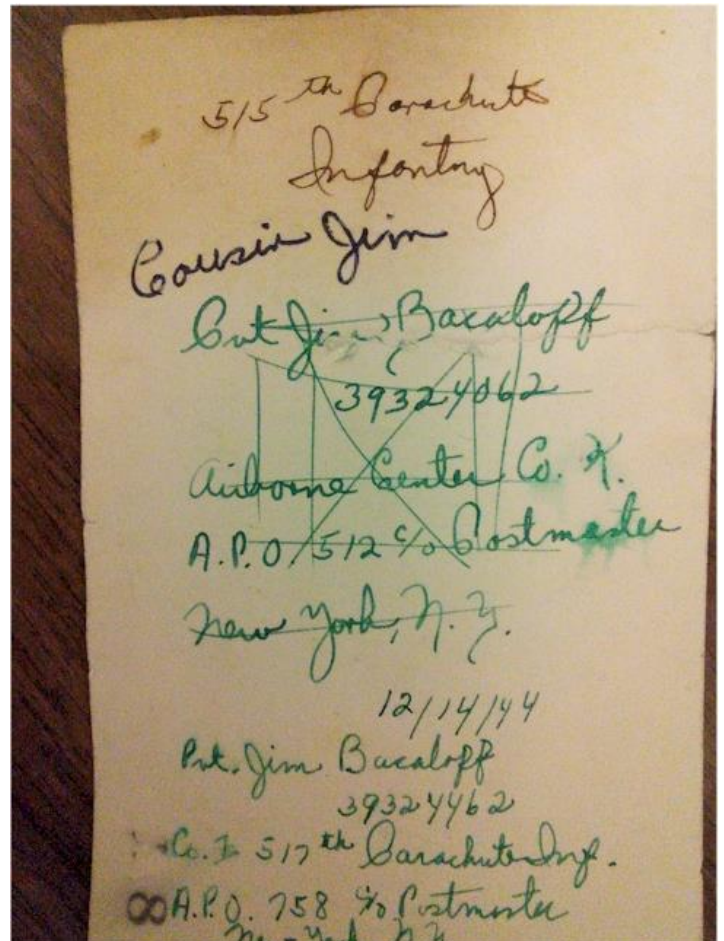 515th Parachute
Infantry
Cousin Jim
Pvt Jim Bacaloff
39324062
Airborne Center Co. K.
A.P.O. 512 c/o Postmaster
New York, N.Y.
12/14/44
Pvt. Jim Bacaloff
39324462
Co. I 517th Parachute Inf.
8
A.P.O. 758 c/o Postmaster
New York N.Y.